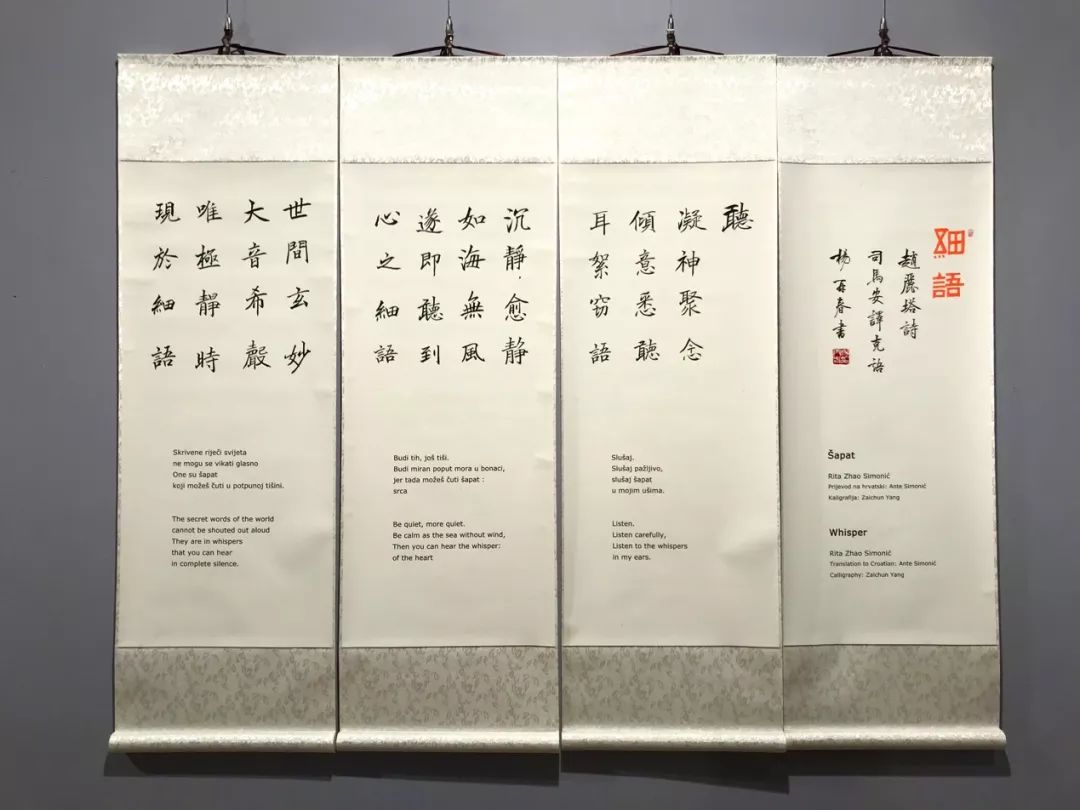 細語
趙麗塔詩
司馬安譯克語
楊再春書
Šapat
Rita Zhao Simonić
Prijevod na hrvatski: Ante Simonić
Kaligrafija: Zaichun Yang
Whisper
Rita Zhao Simonić
Translation to Croatian: Ante Simonić
Calligraphy: Zaichun Yang
聽
凝神聚念
傾意悉聽
耳絮窃語
Slušaj.
Slušaj pažljivo,
slušaj šapat
u mojim ušima.
Listen.
Listen carefully,
Listen to the whispers
in my ears.
沉靜，愈靜
如海無風
遂即聽到
心之細語
Budi tih, još tiši.
Budi miran poput mora u bonaci,
jer tada možeš čuti šapat :
srca
Be quiet, more quiet.
Be calm as the sea without wind,
Then you can hear the whisper:
of the heart
世間玄妙
大音希聲
唯極靜時
現於細語
Skrivene riječi svijeta
ne mogu se vikati glasno
One su šapat
koji možeš čuti u potpunoj tišini.
The secret words of the world
cannot be shouted out aloud
They are in whispers
that you can hear
in complete silence.